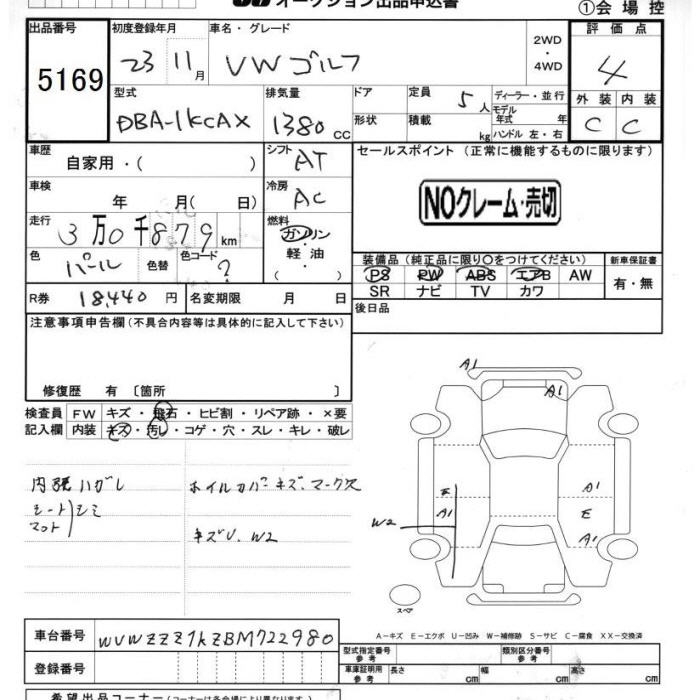 オークション出品申込書
①会場控
出品番号 初度登録年月 車名・グレード 評価点
5169 23 11月 VWゴルフ 2WD・4WD 4
型式 排気量 ドア 定員 5人 ディーラー・並行 外装 内装
DBA-1KCAX 1380cc 形状 積載 kg モデル年式 年 ハンドル 左・右 C C
車歴 自家用・( ) シフト AT セールスポイント (正常に機能するものに限ります)
車検 年 月( 日) 冷房 AC
NOクレーム・売切
走行 3万0千879km 燃料 ガソリン・軽油・( )
色 パール 色替 色コード ?
装備品 (純正品に限り○をつけてください) 新車保証書
PS PW ABS エアB AW 有・無
SR ナビ TV カワ
R券 18,440円 名変期限 月 日 後日品
注意事項申告欄(不具合内容等は具体的に記入して下さい)
修復歴 有 〔箇所 〕
検査員 FW キズ・飛石・ヒビ割・リペア跡・×要
記入欄 内装 キズ・汚し・コゲ・穴・スレ・キレ・破レ
A1
内張ハガレ ホイルカバーキズ、マークス
シート/シミ
マット
キズU、W2
E A1
A1 E
W2 A1
スペア
A-キズ E-エクボ U-凹み W-補修跡 S-サビ C-腐食 XX-交換済
車台番号 WVWZZZ1KZBM722980
型式指定番号 参考 類別区分番号 参考
登録番号 車庫証明用 参考 長さ cm 幅 cm 高さ cm
希望出品コーナー(コーナーは各会場により異なります)